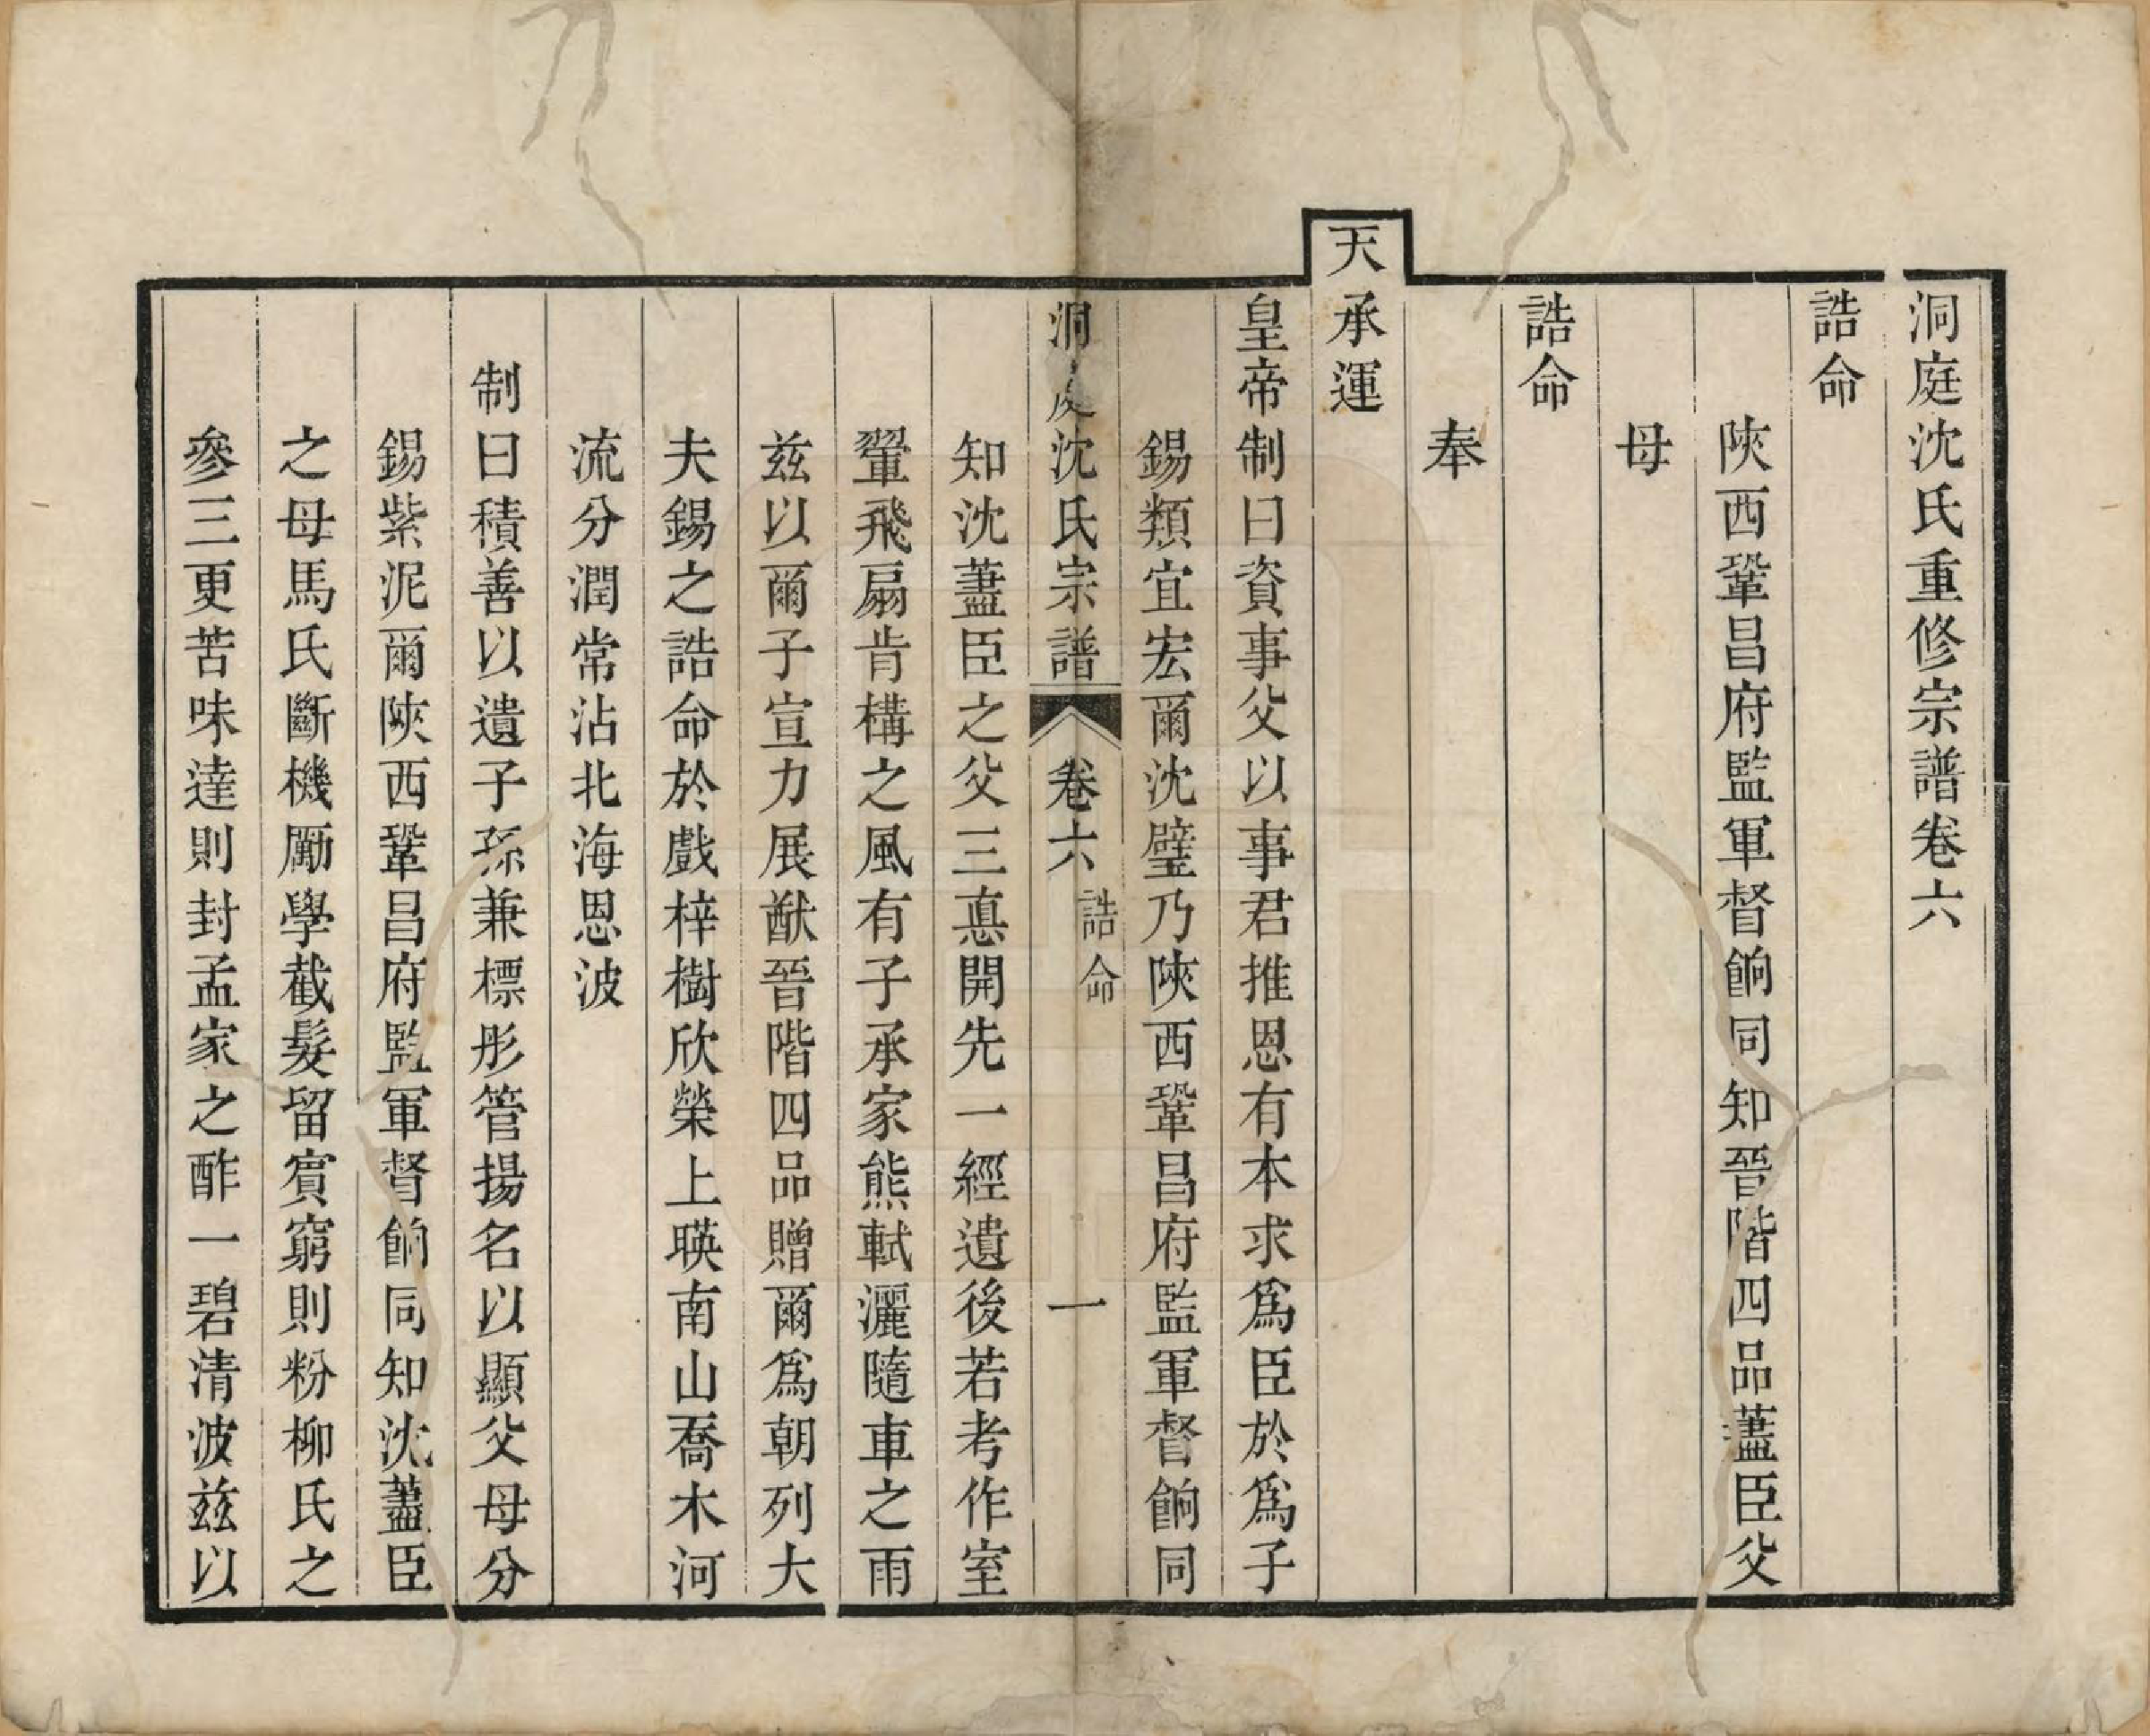 洞庭沈氏重修宗譜卷六
誥命
陝西鞏昌府監軍督餉同知晉階四品藎臣父
母
誥命
奉
天承運
皇帝制曰資事父以事君推恩有本求爲臣於爲子
錫類宜宏爾沈璧乃陝西鞏昌府監軍督餉同
洞庭沈氏宗譜 卷六 誥命 一
知沈藎臣之父三惪開先一經遺後若考作室
翬飛扇肯構之風有子承家熊軾灑隨車之雨
兹以爾子宣力展猷晉階四品贈爾爲朝列大
夫錫之誥命於戲梓樹欣榮上暎南山喬木河
流分潤常沾北海恩波
制曰積善以遺子孫兼標彤管揚名以顯父母分
錫紫泥爾陝西鞏昌府監軍督餉同知沈藎臣
之母馬氏斷機勵學截髮留賓窮則粉柳氏之
參三更苦味達則封孟家之酢一碧清波兹以